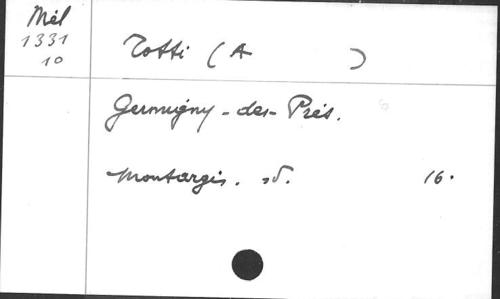 Mél
1331
10
Totti (A )
Germigny-des-Prés.
Montargis. sd. 16.